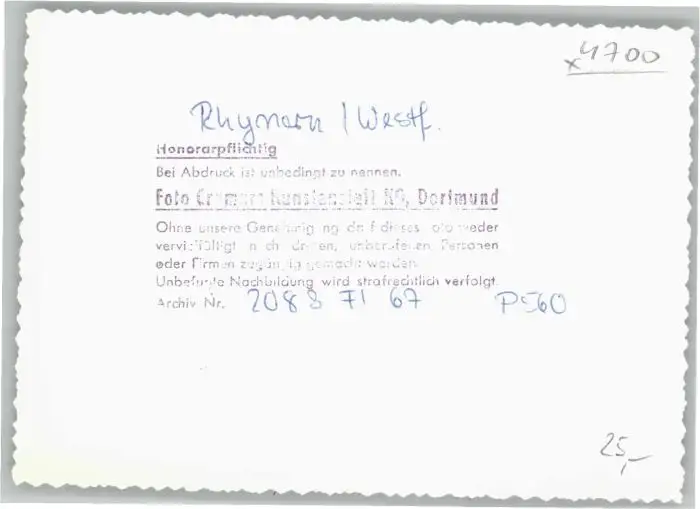 x 4700
Rhynern / Westf.
Honorarpflichtig
Bei Abdruck ist unbedingt zu nennen.
Foto Cramers Kunstanstalt KG, Dortmund
Ohne unsere Genehmigung darf dieses Foto weder
vervielfältigt noch dritten, unberufenen Personen
oder Firmen zugängig gemacht werden.
Unbefugte Nachbildung wird strafrechtlich verfolgt.
Archiv Nr. 2088 71 67 P560
25,-